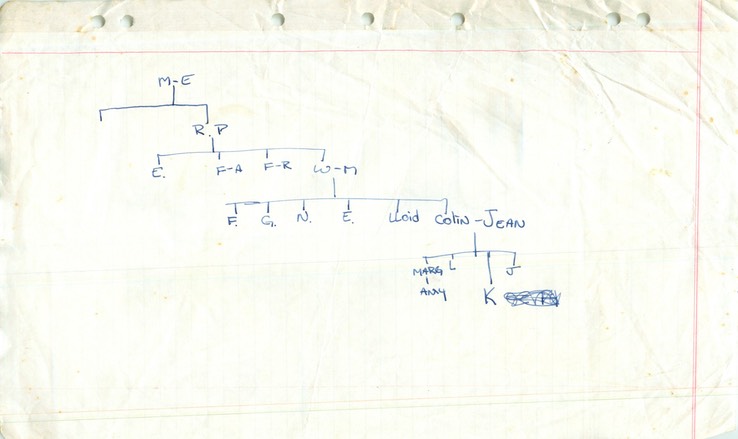 M-E
R.P
E. F-A F-R W-M
F. G. N. E. Lloid Colin-JEAN
MARG L J
AMY K